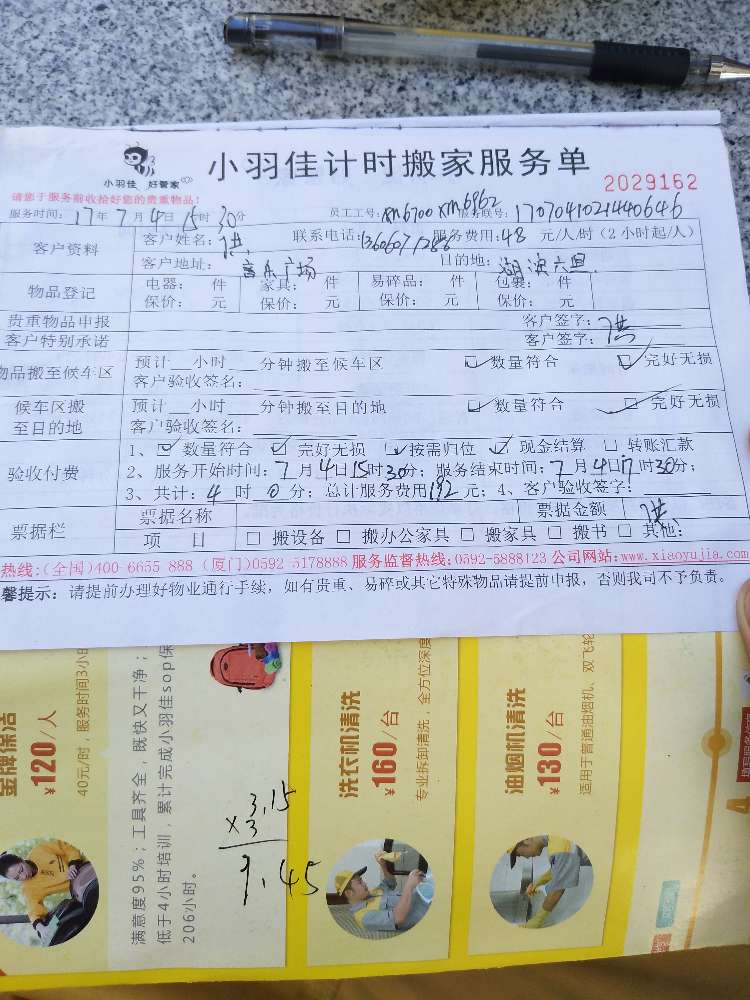 小羽佳 好管家
小羽佳计时搬家服务单
2029162
请您于服务前收拾好您的贵重物品!
服务时间: 17年7月4日15时30分 员工工号: xm6700 xm6862 服务联号: 1707041021440646
客户资料 客户姓名: 洪 联系电话: 13606071288 服务费用: 48 元/人/时 (2小时起/人)
客户地址: 音乐广场 目的地: 湖滨六里
物品登记 电器: 件 家具: 件 易碎品: 件 包裹: 件
保价: 元 保价: 元 保价: 元 保价: 元
贵重物品申报 客户签字: 洪
客户特别承诺 客户签字: 洪
物品搬至候车区 预计__小时__分钟搬至候车区 ☑数量符合 ☑完好无损
客户验收签名:
候车区搬至目的地 预计__小时__分钟搬至目的地 ☑数量符合 ☑完好无损
客户验收签名:
验收付费 1、☑数量符合 ☑完好无损 ☑按需归位 ☑现金结算 □转账汇款
2、服务开始时间: 7月4日15时30分; 服务结束时间: 7月4日17时30分;
3、共计: 4时0分; 总计服务费用192元; 4、客户验收签字: 洪
票据栏 票据名称 票据金额
项 目 □搬设备 □搬办公家具 □搬家具 □搬书 □其他:
热线:(全国)400-6655 888 (厦门)0592-5178888 服务监督热线:0592-5888123 公司网站:www.xiaoyujia.com
馨提示: 请提前办理好物业通行手续, 如有贵重、易碎或其它特殊物品请提前申报, 否则我司不予负责。
金牌保洁
¥120/人
40元/时, 服务时间3小
满意度95%; 工具齐全, 既快又干净;
低于4小时培训, 累计完成小羽佳sop保
206小时。
洗衣机清洗
¥160/台
专业拆卸清洗, 全方位深度
油烟机清洗
¥130/台
适用于普通油烟机、双飞轮
3.15
×3
9.45